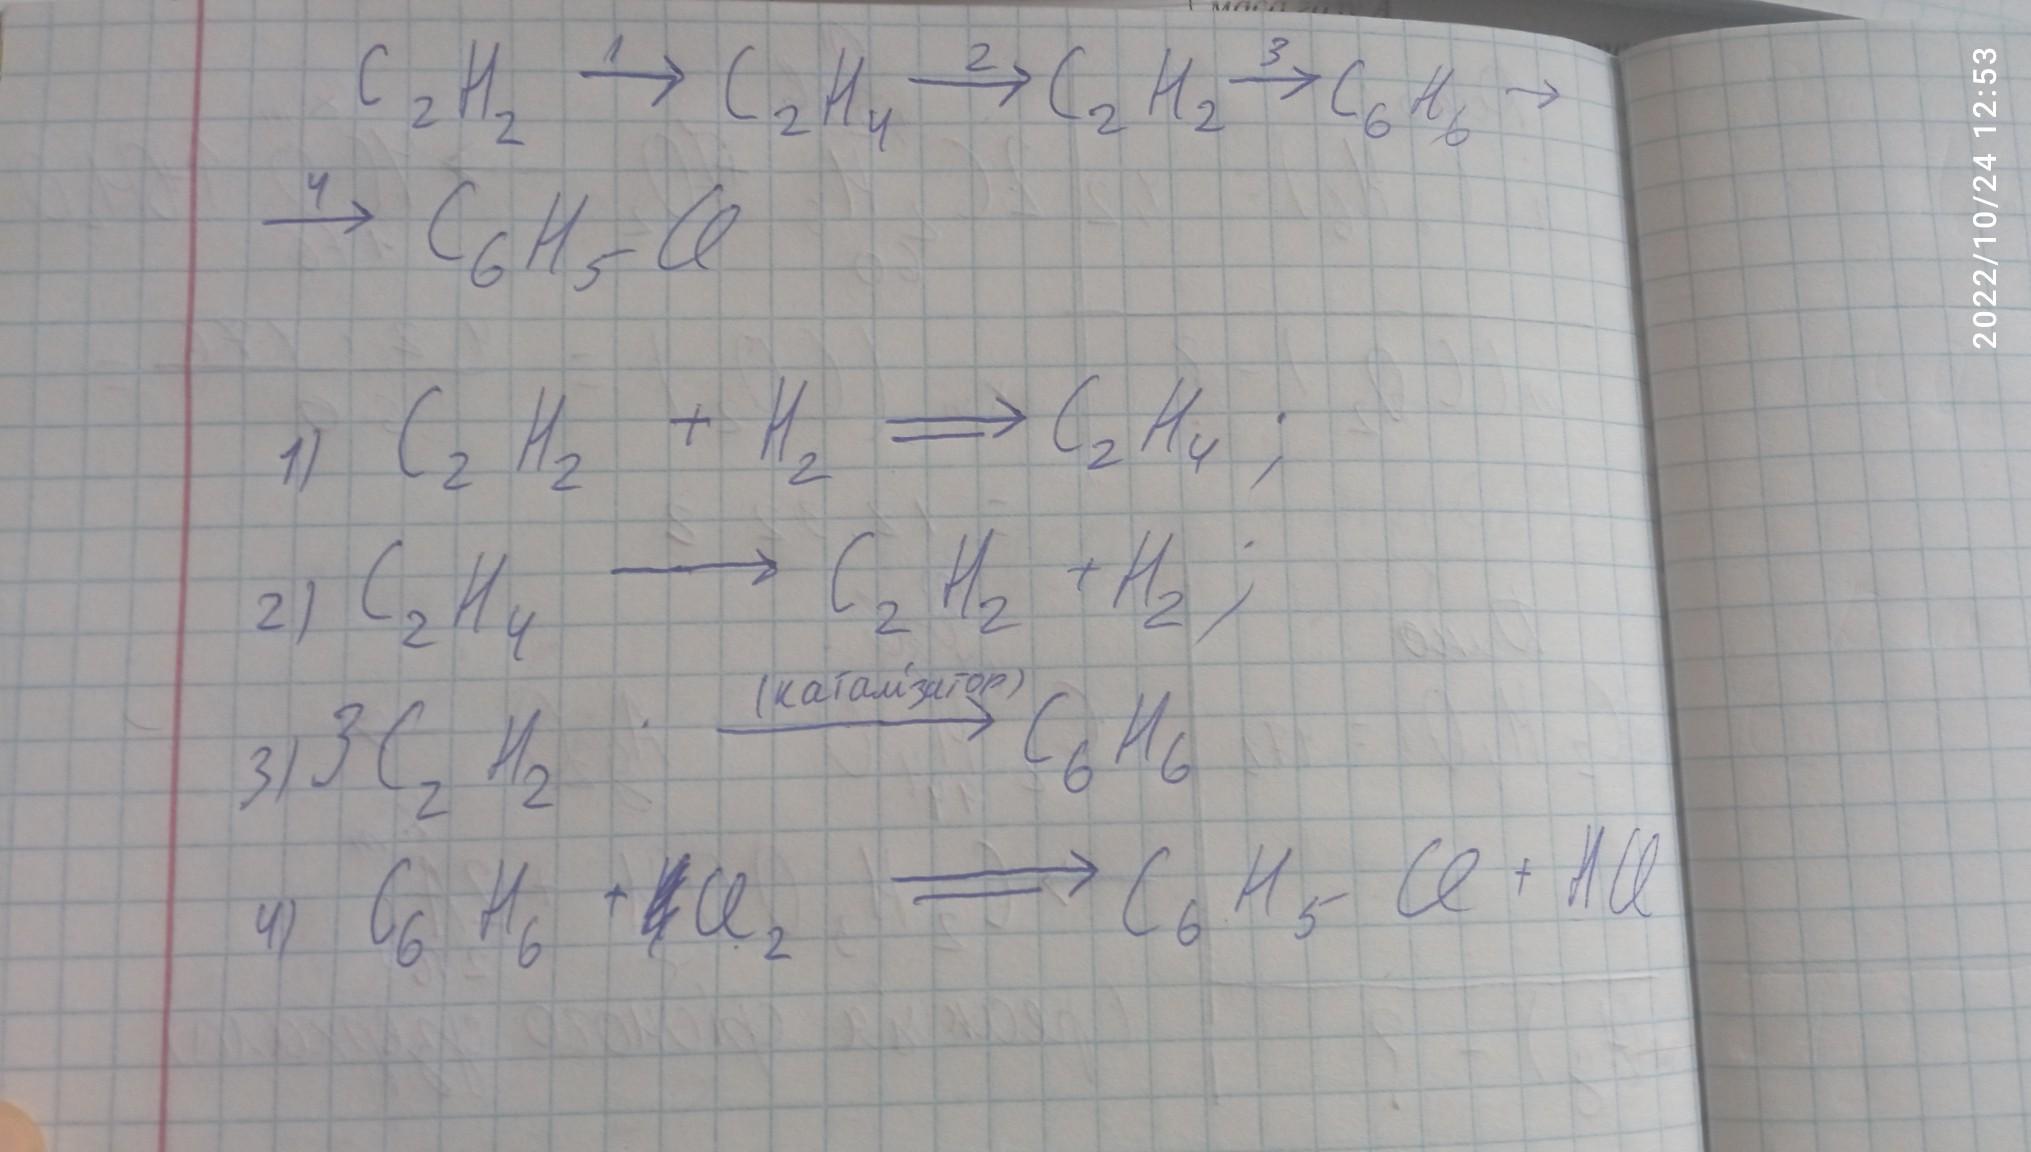 C₂H₂ →¹ C₂H₄ →² C₂H₂ →³ C₆H₆ →
→⁴ C₆H₅Cl
1) C₂H₂ + H₂ ⇒ C₂H₄ ;
2) C₂H₄ → C₂H₂ + H₂ ;
(каталізатор)
3) 3C₂H₂ → C₆H₆
4) C₆H₆ + Cl₂ ⇒ C₆H₅Cl + HCl
2022/10/24 12:53